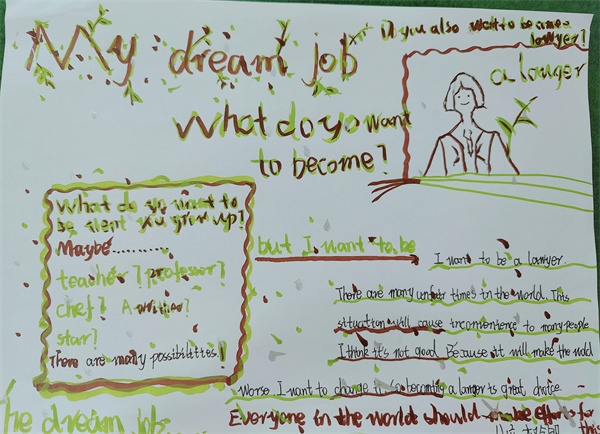 My dream job
Do you also want to become a
lawyer?
a lawyer
What do you want
to become?
What do you want to
be when you grow up?
Maybe..........
teacher? professor?
chef? A writer?
star?
There are many possibilities!
but I want to be
I want to be a lawyer
There are many unfair times in the world. This
situation will cause inconvenience to many people
I think it's not good. Because it will make the world
worse. I want to change it so becoming a lawyer is great choice
The dream job
Everyone in the world should make efforts for
this